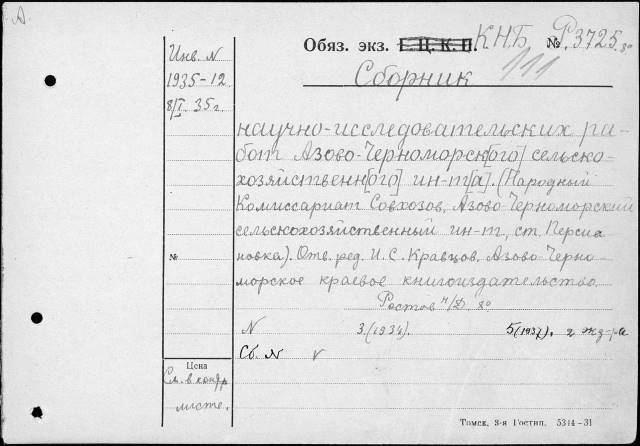 А
Обяз. экз. Г. Ц. К. П. К.Н.Б. № Р.3725.8°
Инв. N
1935-12
8/I. 35 г.
Сборник 111
научно-исследовательских ра-
бот Азово-Черноморск[ого] сельско-
хозяйственн[ого] ин-т[а]. (Народный
Комиссариат Совхозов, Азово-Черноморский
сельскохозяйственный ин-т, ст. Персиа
новка). Отв. ред. И. С. Кравцов. Азово-Черно-
морское краевое книгоиздательство
Ростов н/Д 8°
№
N 3.(1934). 5(1937),
Сб. N V
Цена
См. в контр
листе.
Томск, 3-я Гостип. 5314-31